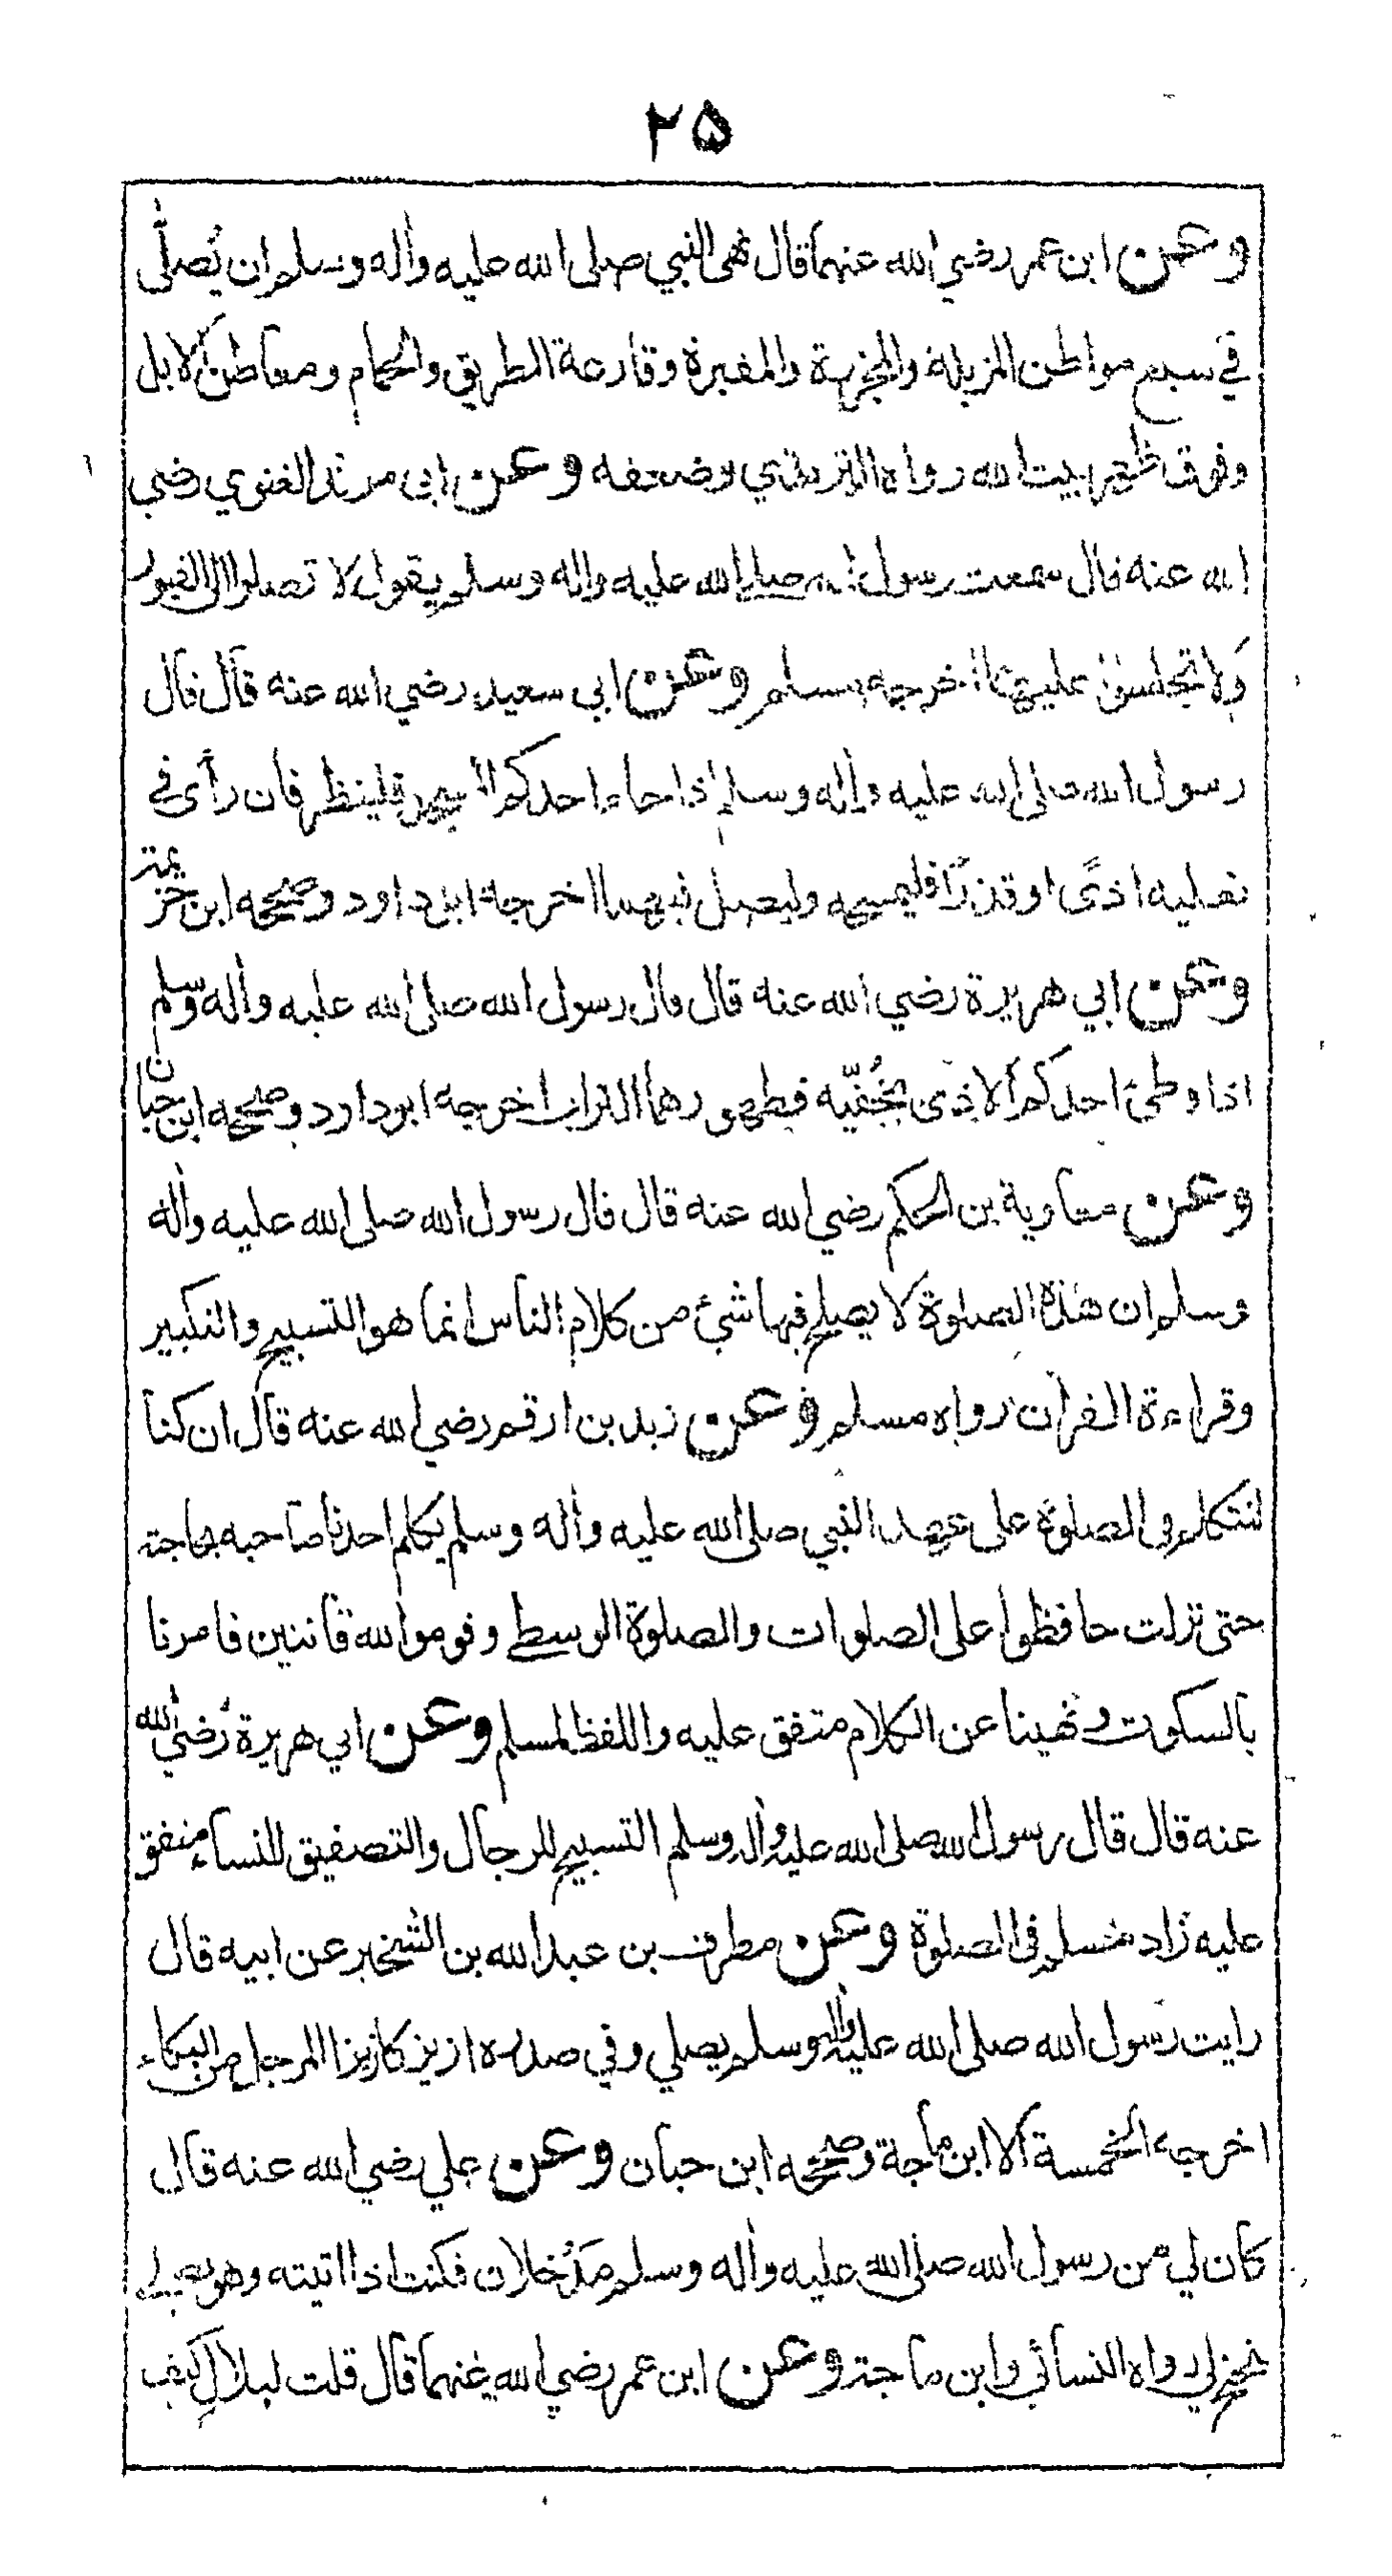 ٢٥
وعن ابن عمر رضي الله عنهما قال نهى النبي صلى الله عليه واٰله وسلم ان يُصلّٰى
في سبع مواطن المزبلة والمجزرة والمقبرة وقارعة الطريق والحمام ومعاطن الابل
وفوق ظهر بيت الله رواه الترمذي وضعفه وعن ابي مرثد الغنوي رضي
الله عنه قال سمعت رسول الله صلى الله عليه واله وسلم يقول لا تصلوا الى القبور
ولا تجلسوا عليها اخرجه مسلم وعن ابي سعيد رضي الله عنه قال قال
رسول الله صلى الله عليه واٰله وسلم اذا جاء احدكم المسجد فلينظر فان رأى في
نعليه اذًى او قذرًا فليمسحه وليصل فيهما اخرجه ابو داود وصححه ابن خزيمة
وعن ابي هريرة رضي الله عنه قال قال رسول الله صلى الله عليه واٰله وسلم
اذا وطئ احدكم الاذى بخُفّيه فطهورهما التراب اخرجه ابو داود وصححه ابن حبان
وعن معاوية بن الحكم رضي الله عنه قال قال رسول الله صلى الله عليه واٰله
وسلم ان هذه الصلوة لا يصلح فيها شيئ من كلام الناس انما هو التسبيح والتكبير
وقراءة القراٰن رواه مسلم وعن زيد بن ارقم رضي الله عنه قال ان كنا
لنتكلم في الصلوة على عهد النبي صلى الله عليه واٰله وسلم يكلم احدنا صاحبه بحاجته
حتى نزلت حافظوا على الصلوات والصلوة الوسطى وقوموا لله قانتين فامرنا
بالسكوت ونهينا عن الكلام متفق عليه واللفظ لمسلم وعن ابي هريرة رضي الله
عنه قال قال رسول الله صلى الله عليه واٰله وسلم التسبيح للرجال والتصفيق للنساء متفق
عليه زاد مسلم في الصلوة وعن مطرف بن عبد الله بن الشخير عن ابيه قال
رايت رسول الله صلى الله عليه واٰله وسلم يصلي وفي صدره ازيز كازيز المرجل من البكاء
اخرجه الخمسة الا ابن ماجة وصححه ابن حبان وعن علي رضي الله عنه قال
كان لي من رسول الله صلى الله عليه واٰله وسلم مَدْخلان فكنت اذا اتيته وهو يصلي
تنحنح لي رواه النسائي وابن ماجة وعن ابن عمر رضي الله عنهما قال قلت لبلال كيف